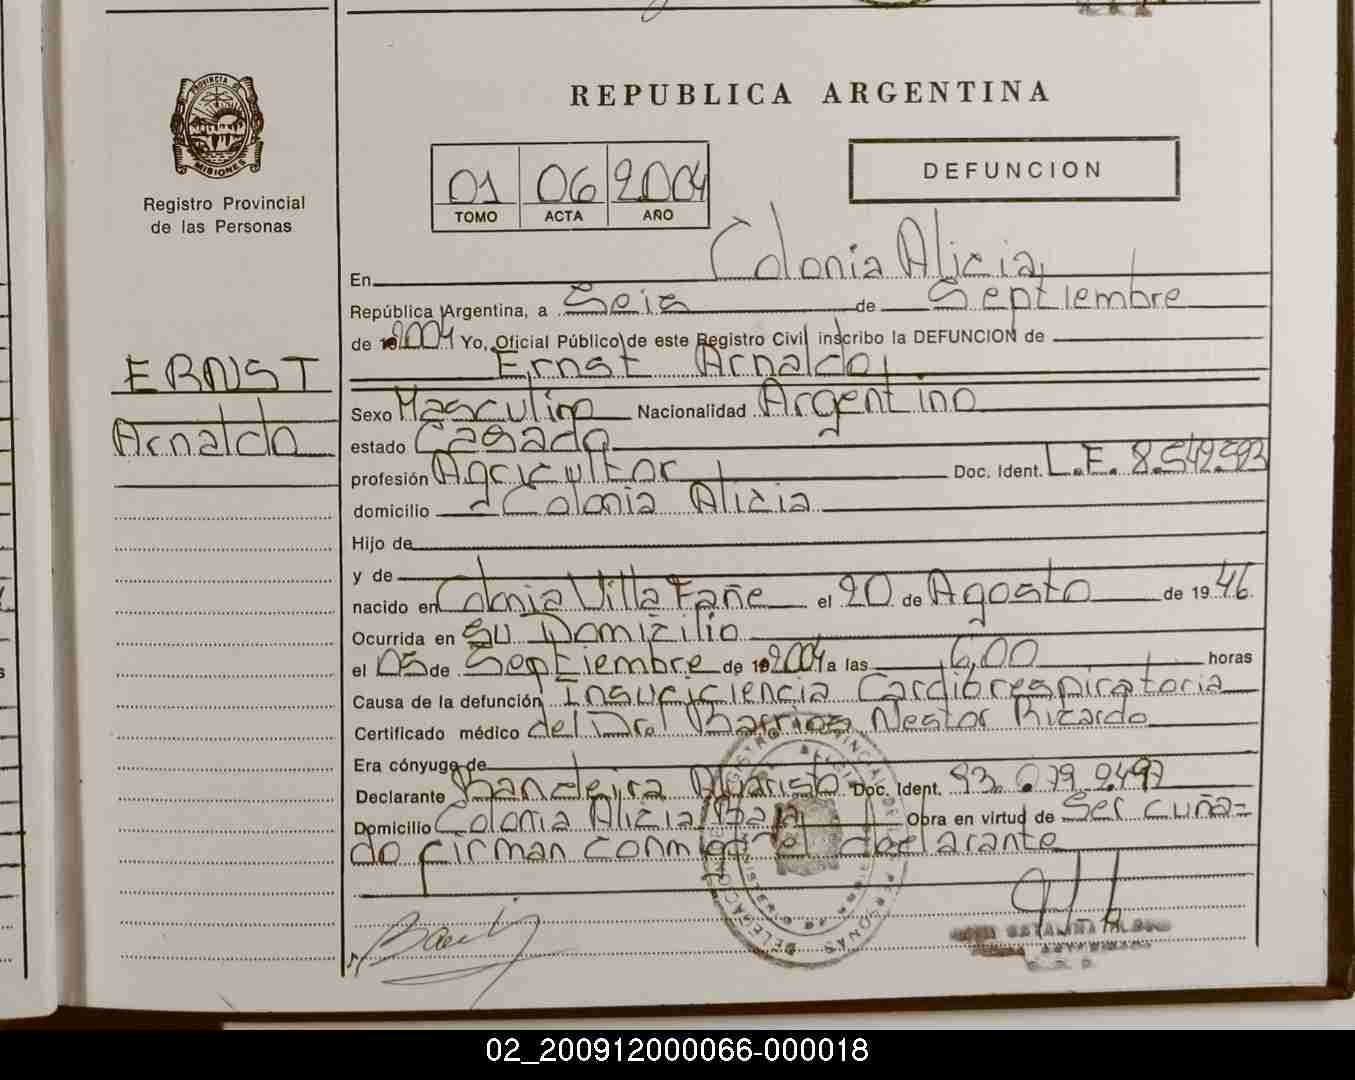 REPUBLICA ARGENTINA
PROVINCIA DE
MISIONES
Registro Provincial
de las Personas
01 06 2004
TOMO ACTA AÑO
DEFUNCION
En Colonia Alicia,
República Argentina, a Seis de Septiembre
de 2004 Yo, Oficial Público de este Registro Civil inscribo la DEFUNCION de
Ernst Arnaldo,
ERNST
Arnaldo
Sexo Masculino Nacionalidad Argentino
estado Casado
profesión Agricultor Doc. Ident. L.E. 8.549.593
domicilio Colonia Alicia
Hijo de
y de
nacido en Colonia Villa Fañe el 20 de Agosto de 1946.
Ocurrida en Su Domizilio
el 05 de Septiembre de 2004 a las 6,00 horas
Causa de la defunción Insuficiencia Cardiorespiratoria
Certificado médico del Dr. Barrios Nestor Ricardo
Era cónyuge de
Declarante Bandeira Doc. Ident. 93.079.249
Domicilio Colonia Alicia Obra en virtud de Ser cuña=
do firman conmigo el declarante
02_200912000066-000018